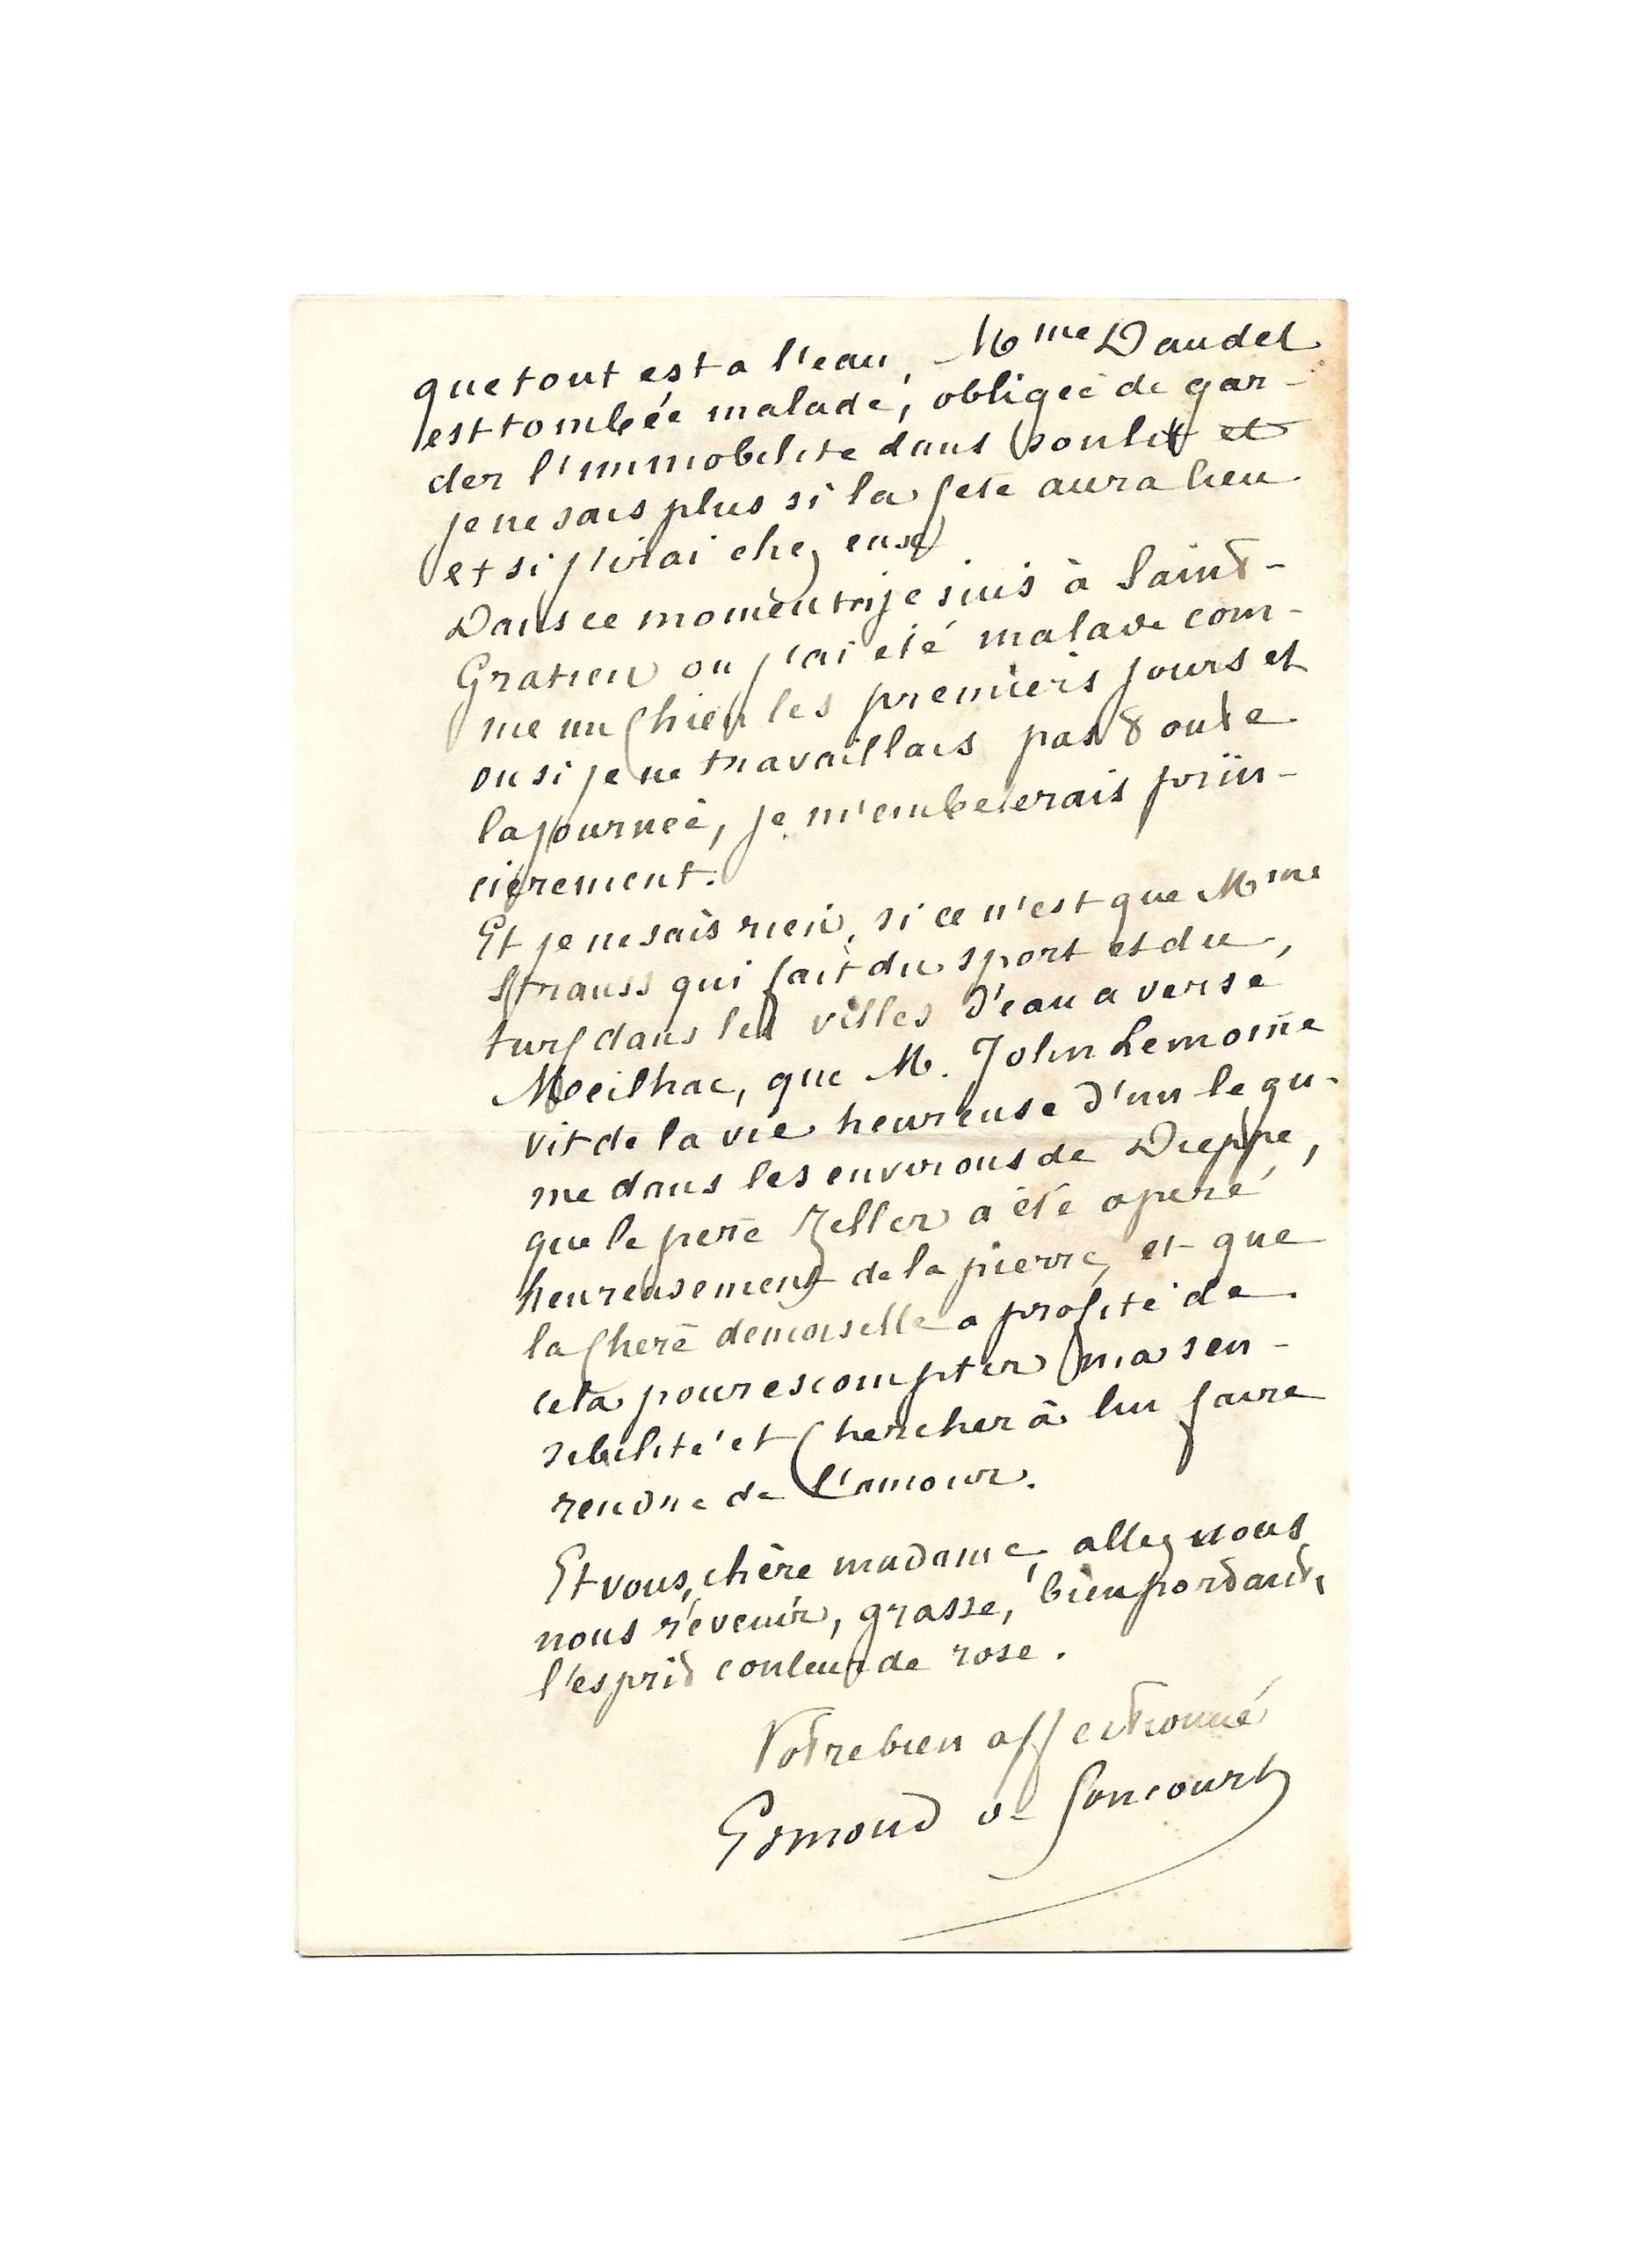 que tout est a l'eau, Mme Daudet
est tombée malade, obligée de gar-
der l'immobilite dans son lit et
je ne sais plus si la fete aura lieu
et si j'irai chez eux
Dans ce moment je suis à Saint-
Gratien ou j'ai eté malade com-
me un chien les premiers jours et
ou si je ne travaillais pas toute
la journée, je m'embeterais prin-
cierement.
Et je ne sais rien, si ce n'est que Mme
Strauss qui fait du sport et du
turf dans les villes d'eau a versé
Meilhac, que M. John Lemoine
vit de la vie heureuse d'un légu-
me dans les environs de Dieppe,
que le pere Zeller a été operé
heureusement de la pierre, et que
la chere demoiselle a profité de
cela pour escompter ma sen-
sibilité et chercher à lui faire
rendre de l'amour.
Et vous, chère madame, allez vous
nous revenir, grasse, bien portante,
l'esprit couleur de rose.
Votre bien affectionné
Edmond de Goncourt